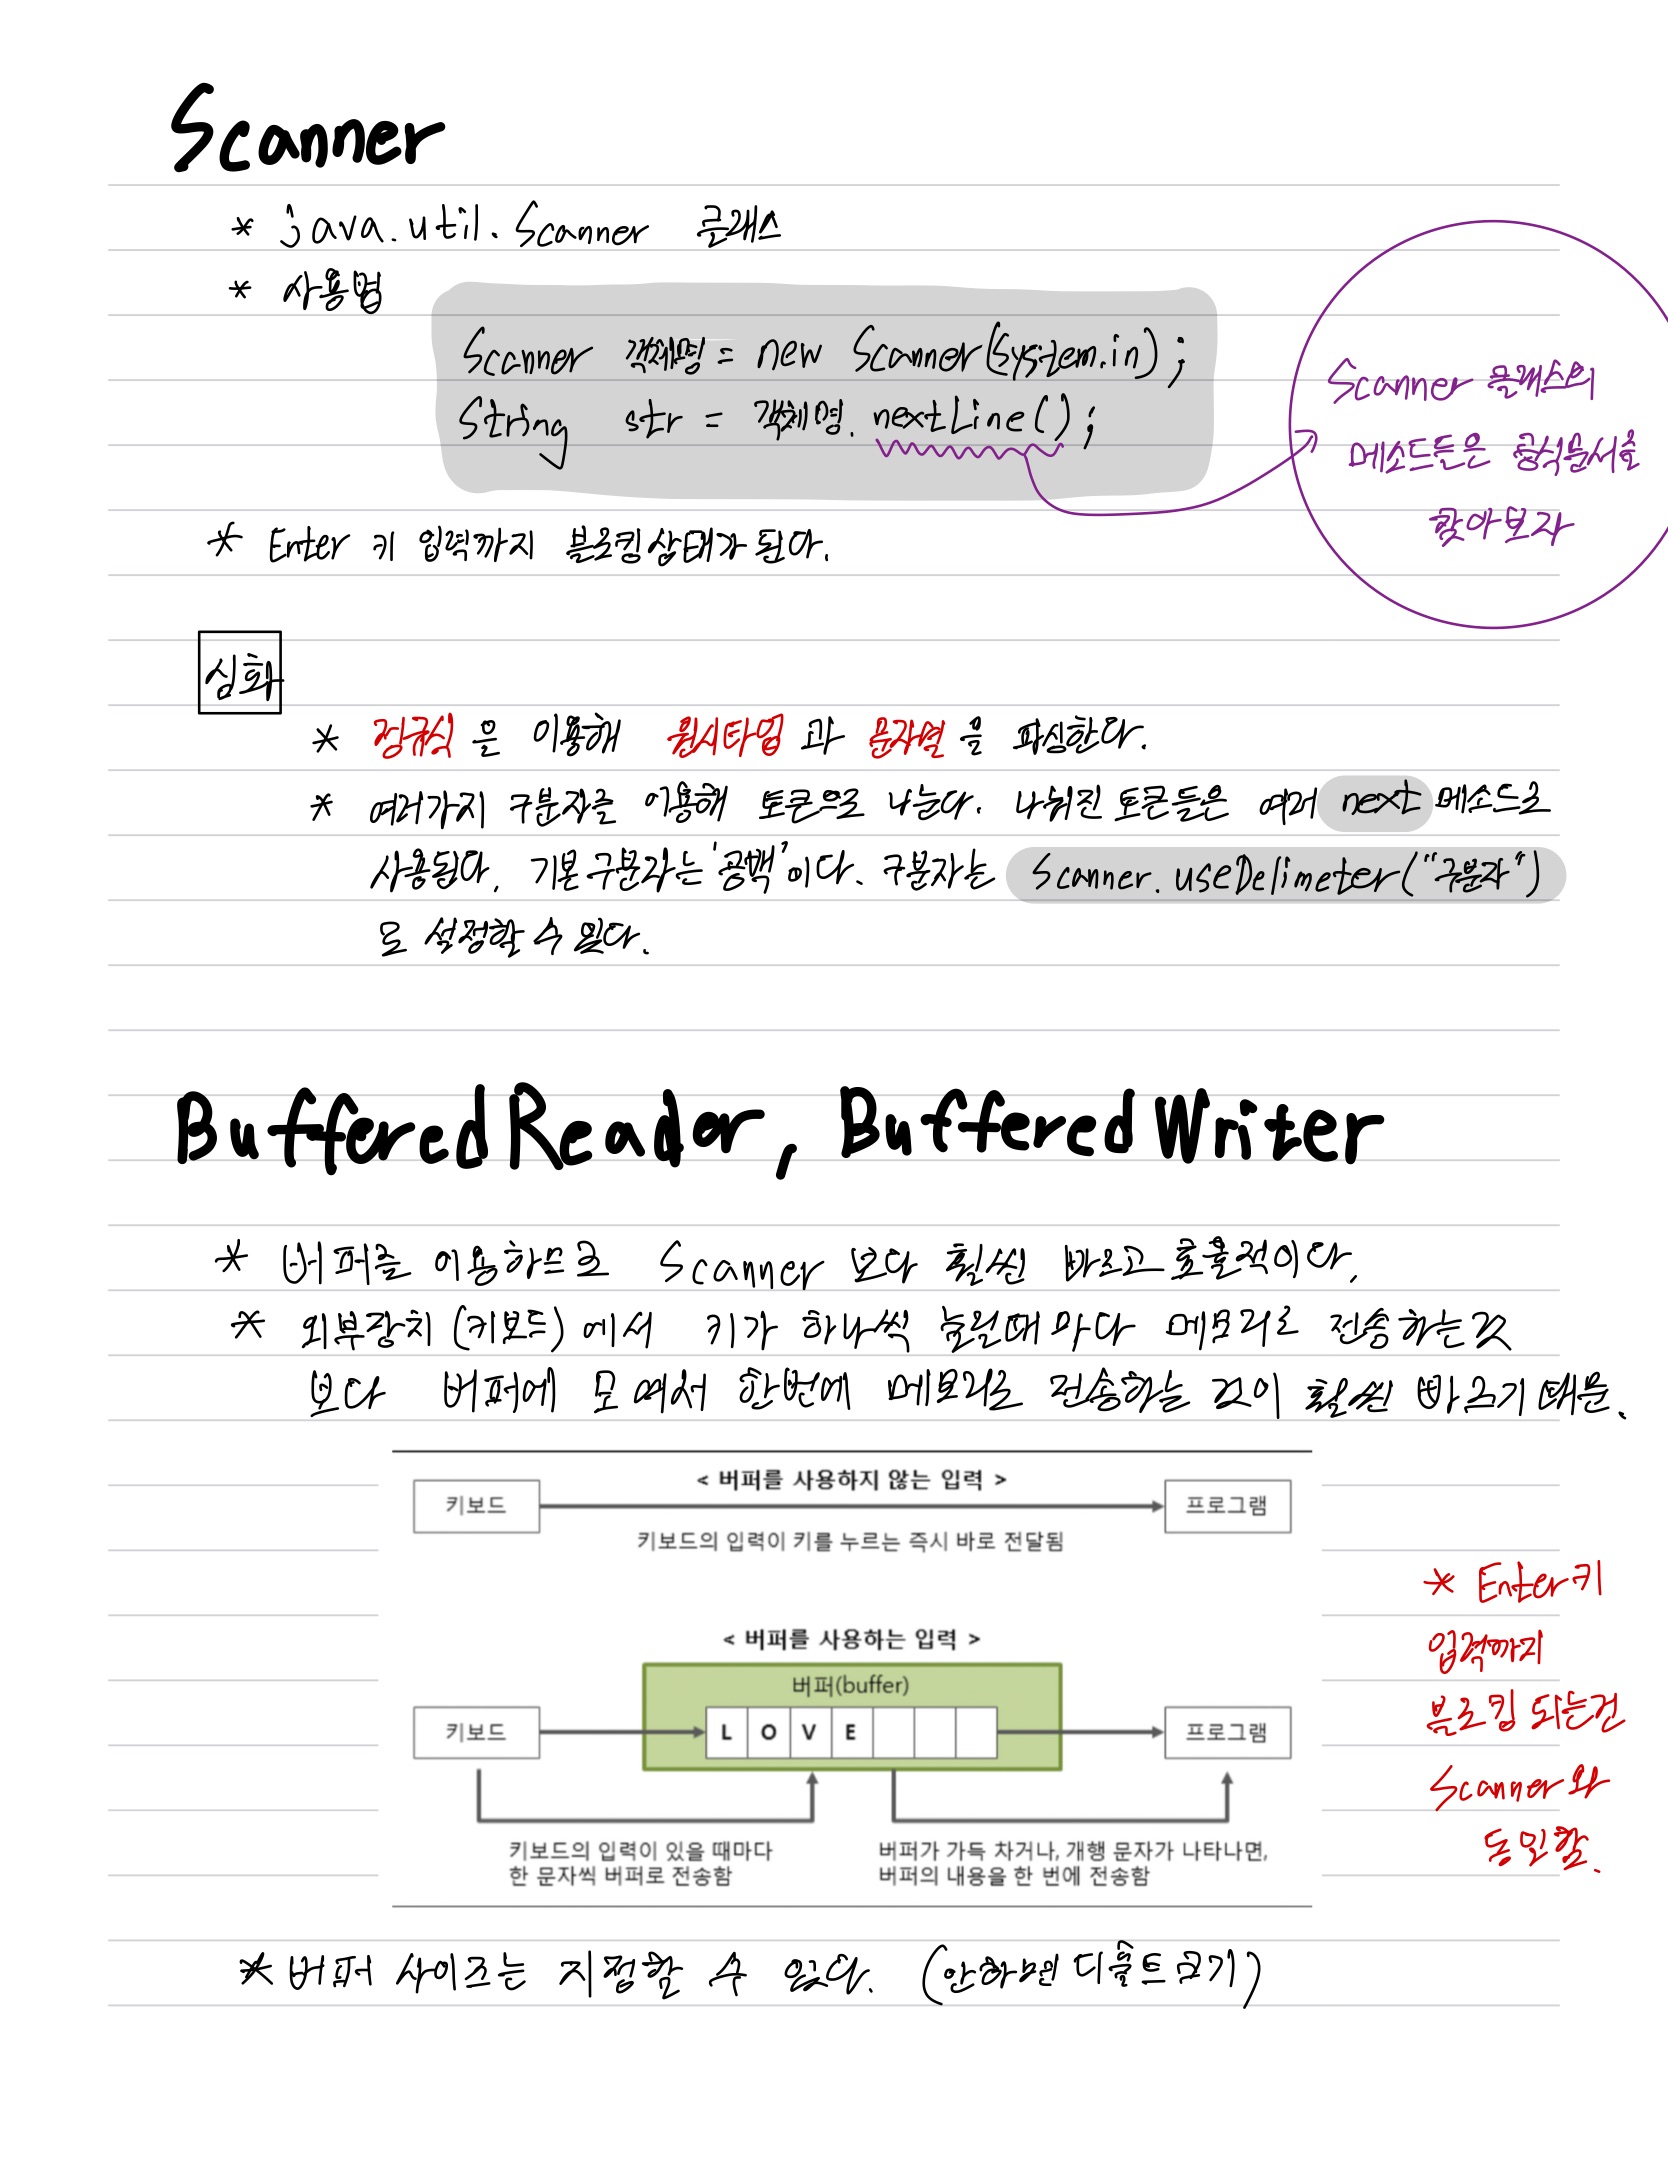 Scanner
* java.util.Scanner 클래스
* 사용법
Scanner 객체명 = new Scanner(System.in);
String str = 객체명.nextLine();
Scanner 클래스의
메소드들은 공식문서를
찾아보자
* Enter 키 입력까지 블로킹상태가 된다.
심화
* 정규식을 이용해 원시타입과 문자열을 파싱한다.
* 여러가지 구분자를 이용해 토큰으로 나눈다. 나눠진 토큰들은 여러 next 메소드로
사용된다. 기본 구분자는 '공백'이다. 구분자는 Scanner.useDelimeter("구분자")
로 설정할 수 있다.
BufferedReader, BufferedWriter
* 버퍼를 이용하므로 Scanner 보다 훨씬 빠르고 효율적이다.
* 외부장치(키보드)에서 키가 하나씩 눌릴때마다 메모리로 전송하는것
보다 버퍼에 모여서 한번에 메모리로 전송하는 것이 훨씬 빠르기 때문.
< 버퍼를 사용하지 않는 입력 >
키보드 프로그램
키보드의 입력이 키를 누르는 즉시 바로 전달됨
< 버퍼를 사용하는 입력 >
버퍼(buffer)
키보드 L O V E 프로그램
키보드의 입력이 있을 때마다
한 문자씩 버퍼로 전송함
버퍼가 가득 차거나, 개행 문자가 나타나면,
버퍼의 내용을 한 번에 전송함
* Enter키
입력까지
블로킹 되는건
Scanner와
동일함.
* 버퍼 사이즈는 지정할 수 있다. (안하면 디폴트크기)